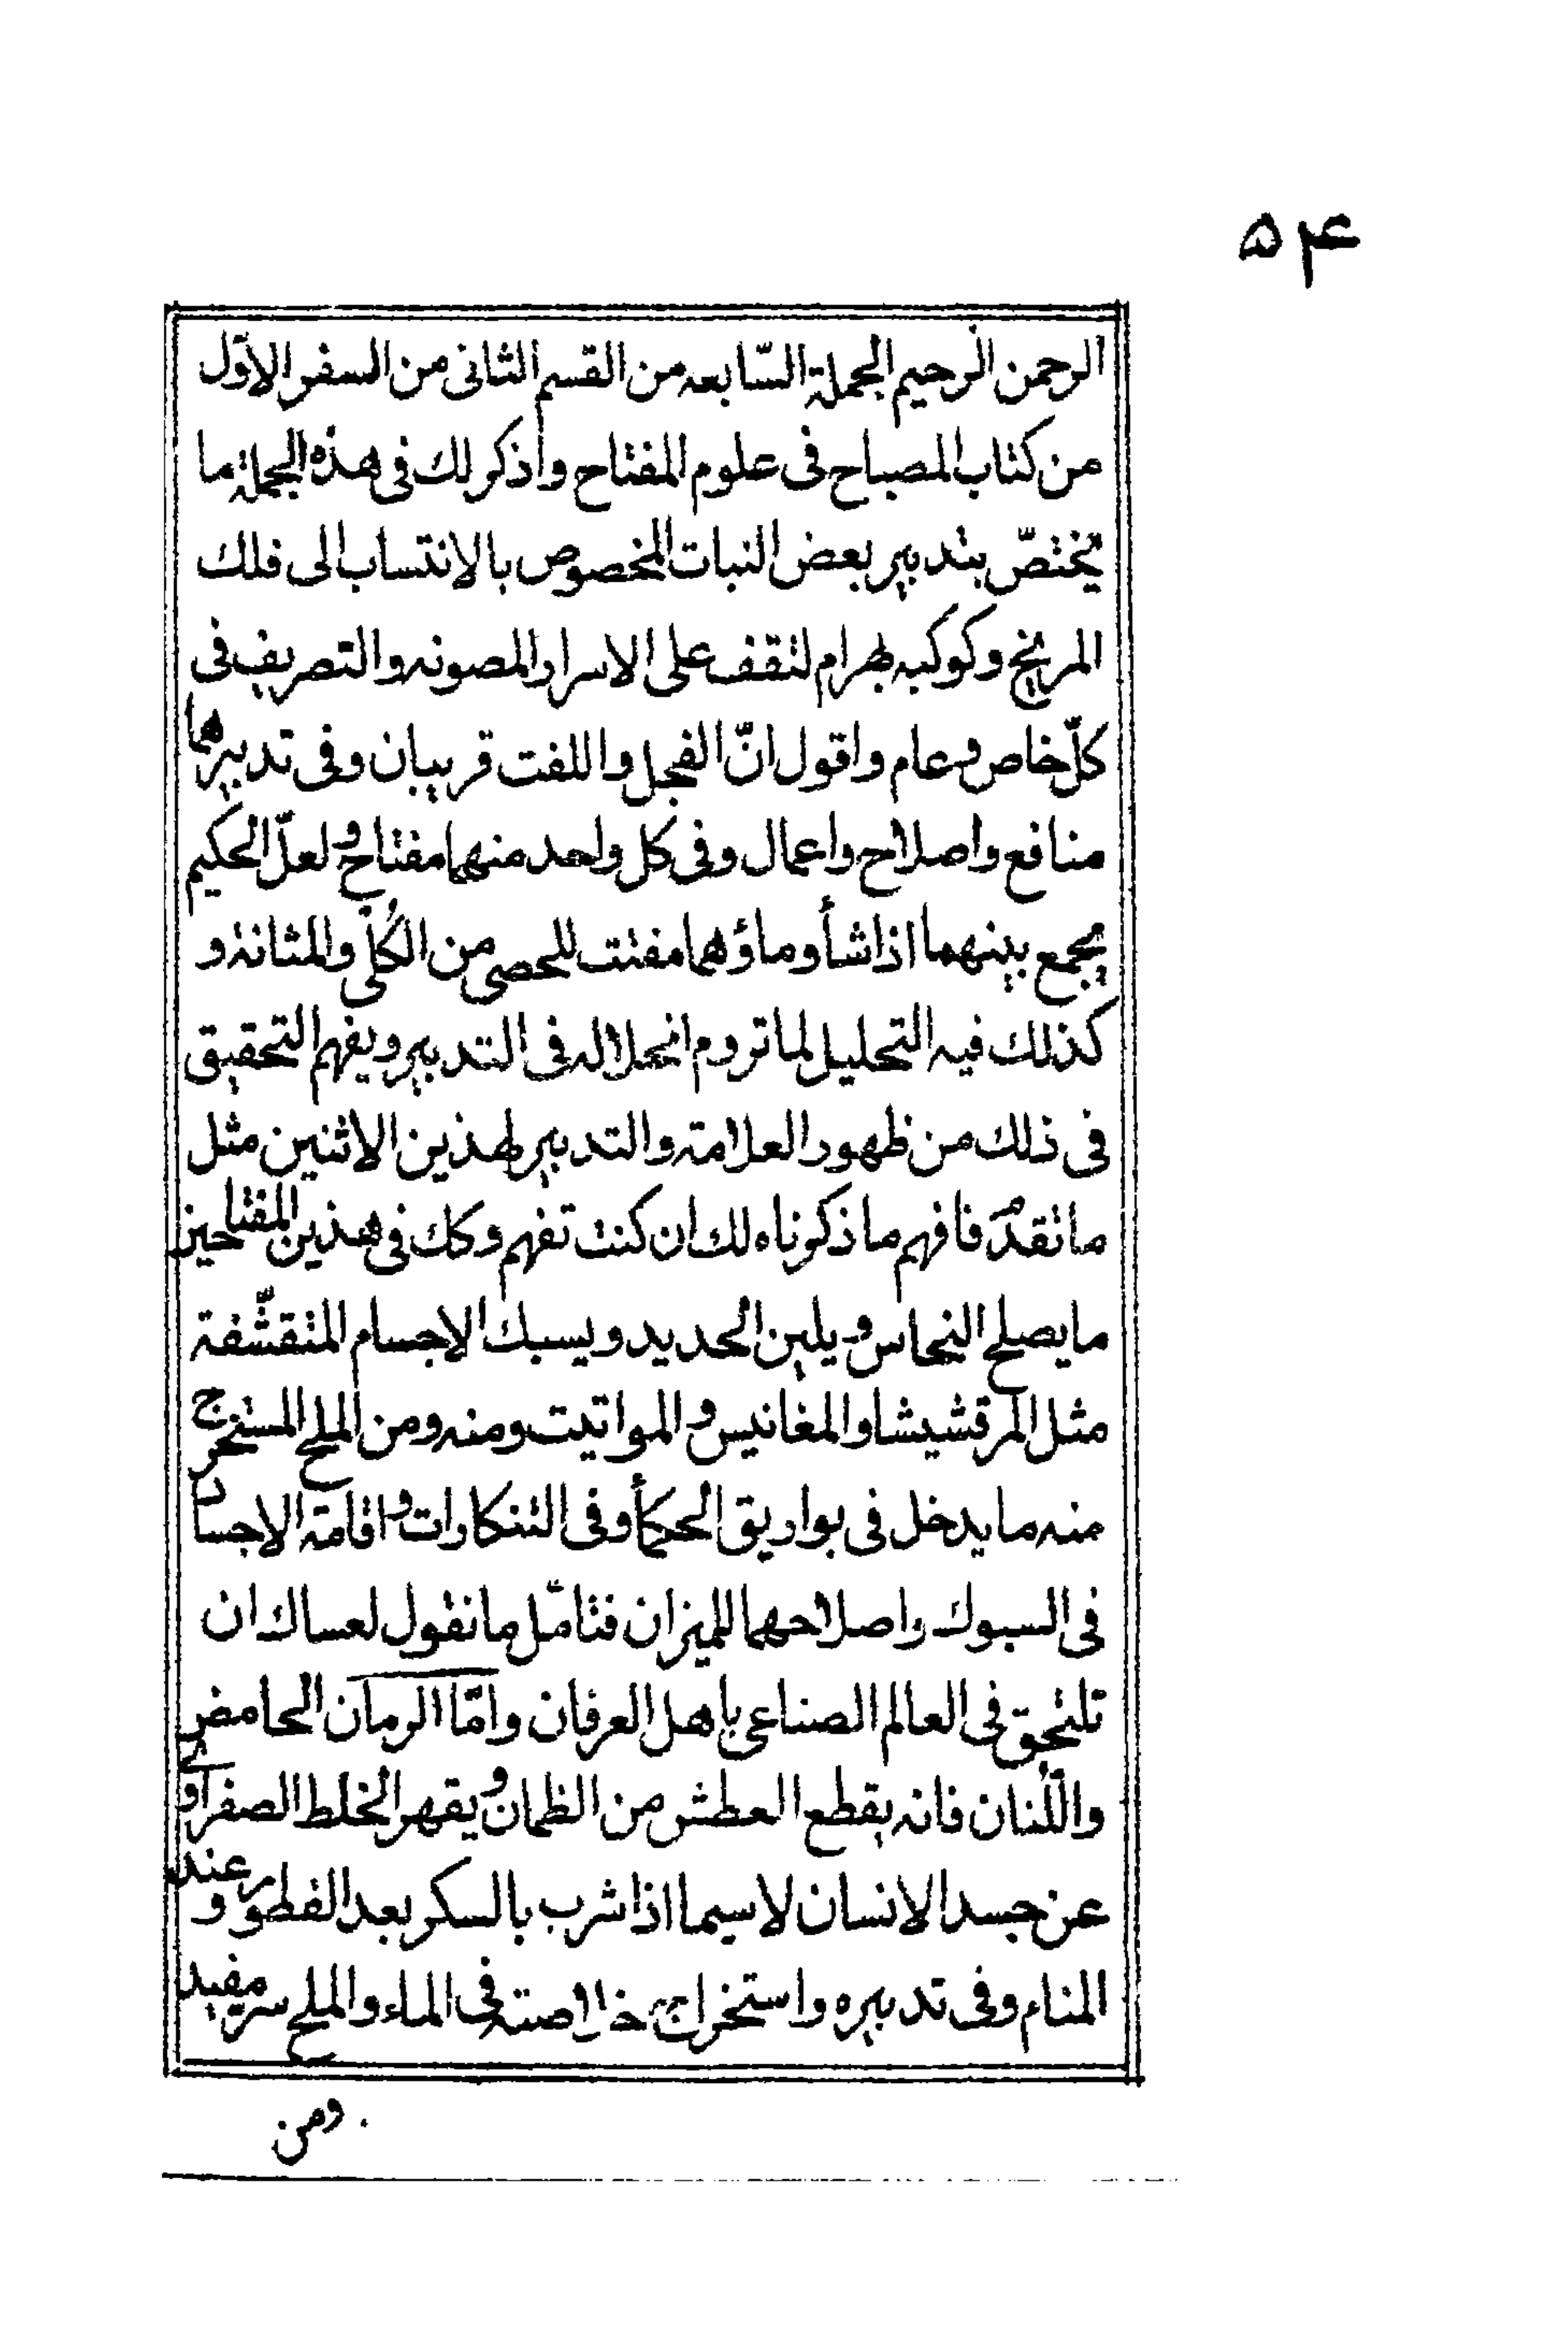 ۵۴
الرحمن الرحيم الجملة السّابعه من القسم الثانى من السفر الاوّل
من كتاب المصباح فى علوم المفتاح واذكر لك فى هذه الجملة ما
يختصّ بتدبير بعض النبات المخصوص بالانتساب الى فلك
المريخ وكوكبه بهرام لتقف على الاسرار المصونه والتصريف فى
كلّ خاص وعام واقول انّ الفجل واللفت قريبان وفى تدبيرهما
منافع واصلاح واعمال وفى كل واحد منهما مفتاح ولعلّ الحكيم
يجمع بينهما اذا شأ وماؤهما مفتت للحصى من الكُلى والمثانة و
كذلك فيه التحليل لما تروم انحلاله فى التدبير ويفهم التحقيق
فى ذلك من ظهور العلامة والتدبير لهذين الاثنين مثل
ما تقدّم فافهم ما ذكرناه لك ان كنت تفهم وكك فى هذين المفتاحين
ما يصلح النحاس ويلين الحديد ويسبك الاجسام المتقشّفة
مثل المرقشيشا والمغانيس والمواتيت ومنه ومن الملح المستخرج
منه ما يدخل فى بواريق الحكمأ وفى التنكارات واقامة الاجساد
فى السبوك واصلاحهما للميزان فتامّل ما نقول لعساك ان
تلتحق فى العالم الصناعى باهل العرفان وامّا الرمان الحامض
واللّنان فانه يقطع العطش من الظمان ويقهر الخلط الصفراوى
عن جسد الانسان لاسيما اذا شرب بالسكر بعد الفطور وعند
المنام وفى تدبيره واستخراج خلاصته فى الماء والملح سر مفيد
ومن